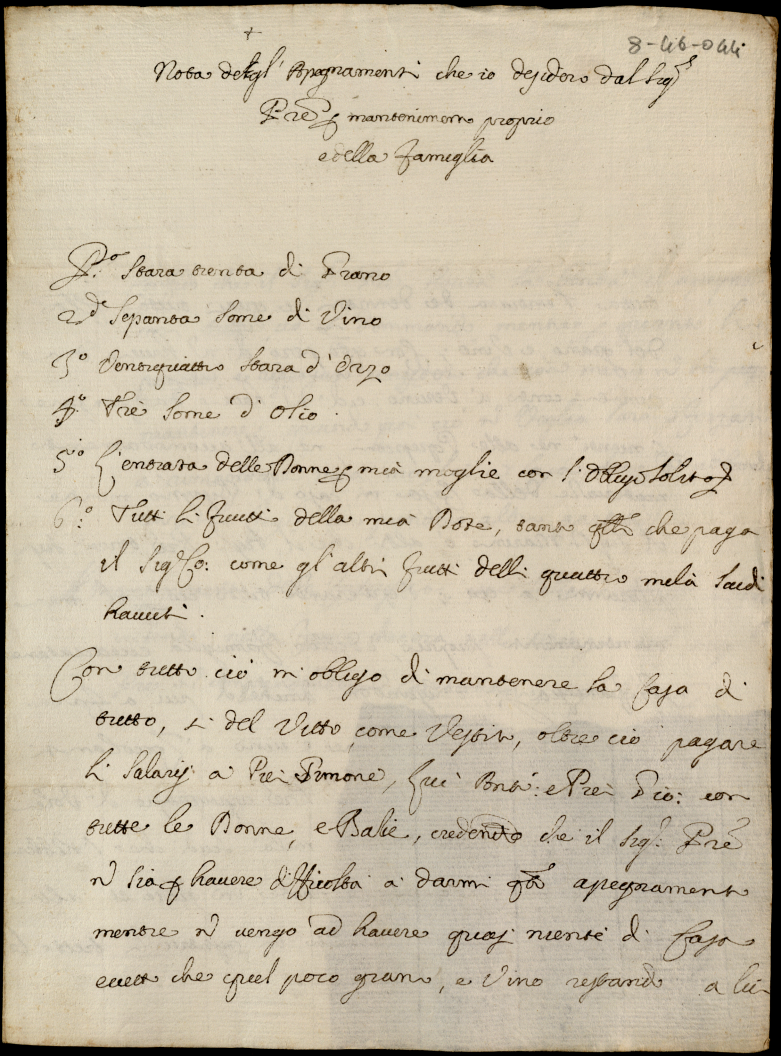 8-46-044
+
Nota degl' Apegnamenti che io desidero dal Sigr
Pre p mantenimento proprio
e della famiglia
Po: Stara trenta di Grano
2do Sepanta Some di Vino
3o Ventiquattro Stara d'Orzo
4o: Trè Some d'Olio.
5o L'entrata delle Bonne p mià moglie con l'obligo solito
6o: Tutti li frutti della mià Dote, tanto qlli che paga
il Sigr Co: come gl'altri frutti delli quattro melà Scudi
havuti.
Con tutto ciò m'obligo di mantenere la Casa di
tutto, si del Vitto, come Vestito, oltre ciò pagare
li Salarij a Prè Simone, e Prè Gio: con
tutte le Donne, e Balie, credendo che il Sigr: Pre
ñ sia p havere difficoltà a darmi qto apegnamento
mentre ñ vengo ad havere quasi niente di Casa
ecett che quel poco grano, e Vino restando a lui